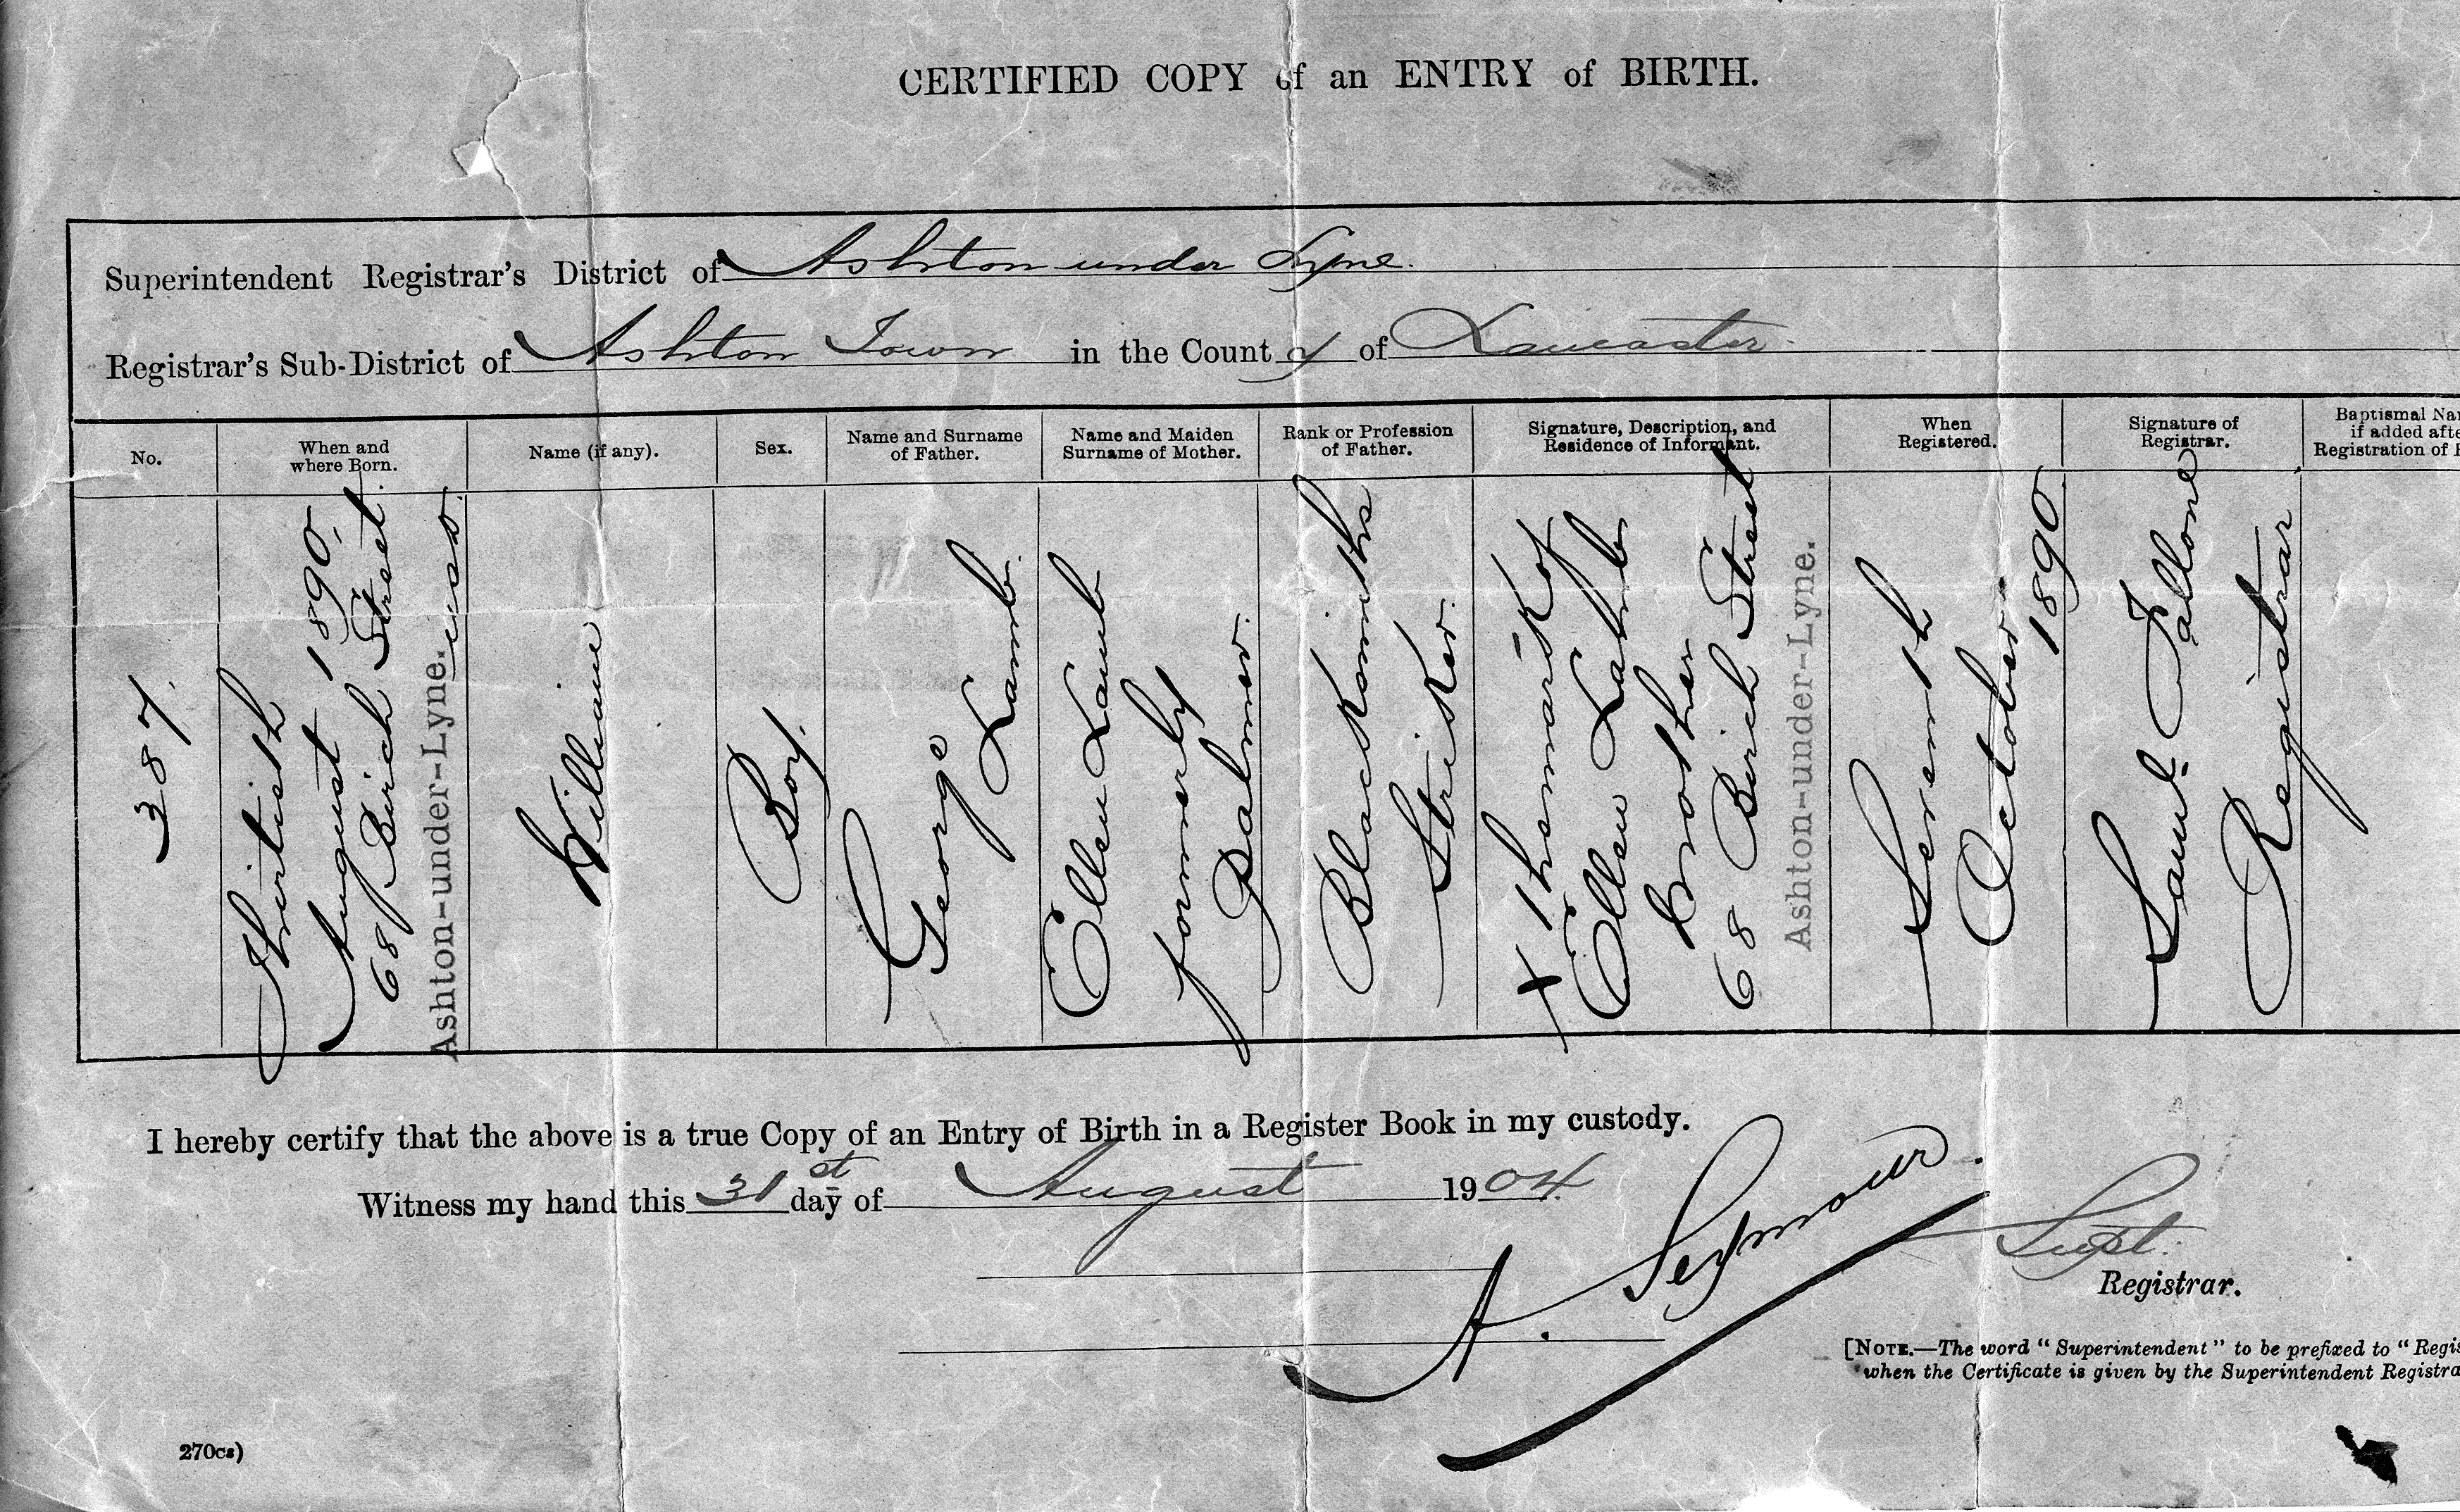 CERTIFIED COPY of an ENTRY of BIRTH.
Superintendent Registrar's District of Ashton under Lyne.
Registrar's Sub-District of Ashton Town in the County of Lancaster.
No.
When and
where Born.
Name (if any).
Sex.
Name and Surname
of Father.
Name and Maiden
Surname of Mother.
Rank or Profession
of Father.
Signature, Description, and
Residence of Informant.
When
Registered.
Signature of
Registrar.
Baptismal Na
if added afte
Registration of
387.
Thirtieth
August 1890,
68 Birch Street.
Ashton-under-Lyne.
William
Boy.
George
Lamb.
Ellen Lamb
formerly
Palmer.
Blacksmiths
Striker.
X The mark of
Ellen Lamb
Mother
68 Birch Street
Ashton-under-Lyne.
Seventh
October
1890
Saml. Fallone
Registrar
I hereby certify that the above is a true Copy of an Entry of Birth in a Register Book in my custody.
Witness my hand this 31st day of August 1904.
A. Seymour.
Supt.
Registrar.
[NOTE.—The word "Superintendent" to be prefixed to "Regis
when the Certificate is given by the Superintendent Registra
270cs)